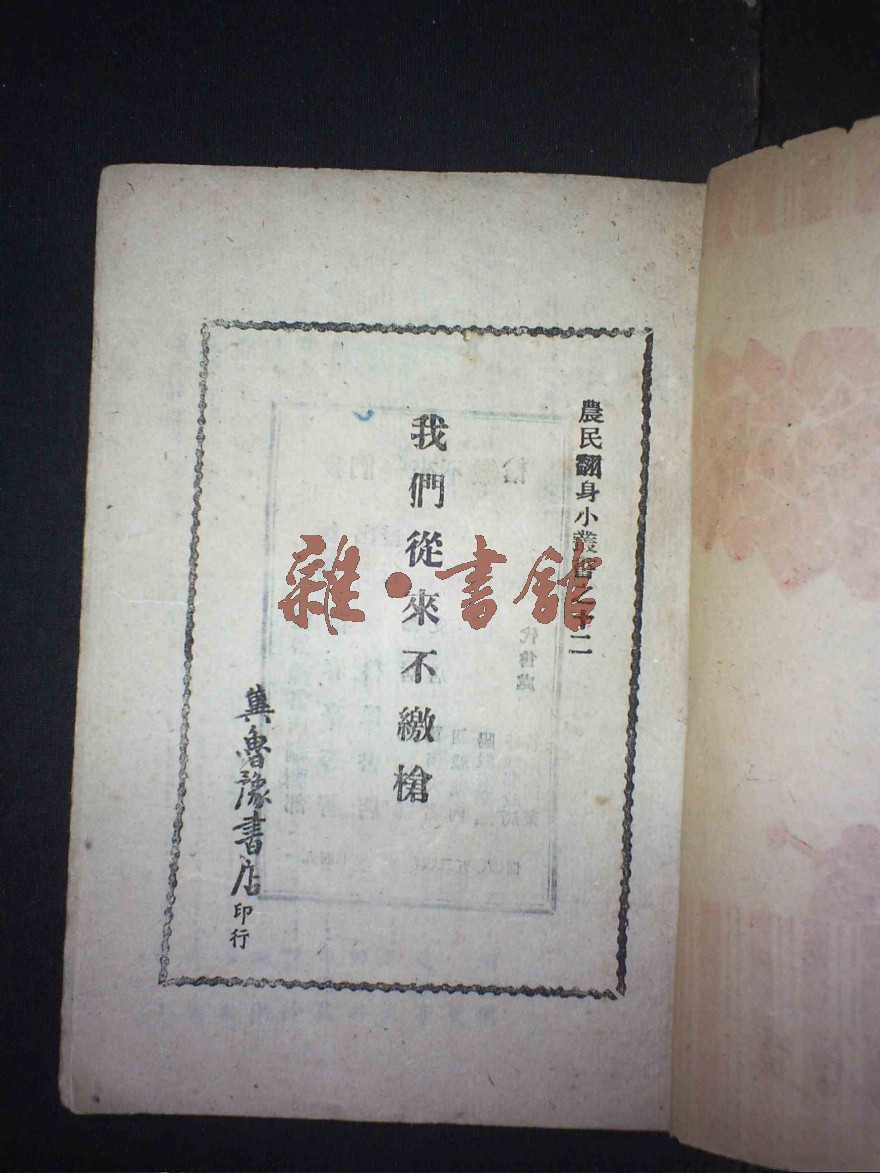 農民翻身小叢書之十二
我們從來不繳槍
冀魯豫書店印行
雜·書館
代售處